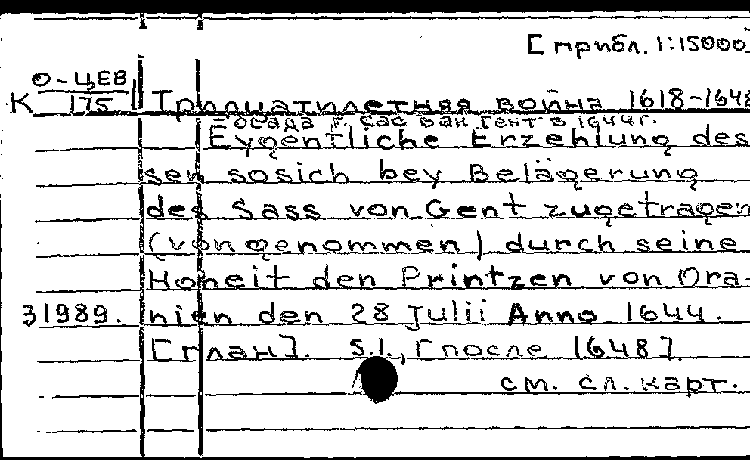 [прибл. 1:15000]
К О-ЦЕВ
175
Тридцатилетняя война 1618-1648
- осада г. Сас ван Гент в 1644г.
Eygentliche Erzehlung des
sen sosich bey Belägerung
des Sass von Gent zugetragen
(von genommen) durch seine
Hoheit den Printzen von Ora-
31989. nien den 28 Julii Anno 1644.
[план]. S.l., [после 1648]
см. сл. карт.